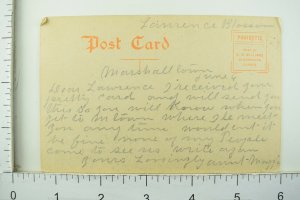 Lawrence Blossom
Post Card
Marshalltown
June 4
Dear Lawrence I received your
pretty card and will send you
this so you will know when you
get to M town where to meet
you any time would ent it
be fine more of my People
come to see us write again
yours Lovingly aunt Maggie
0 1 2 3 4 5 6